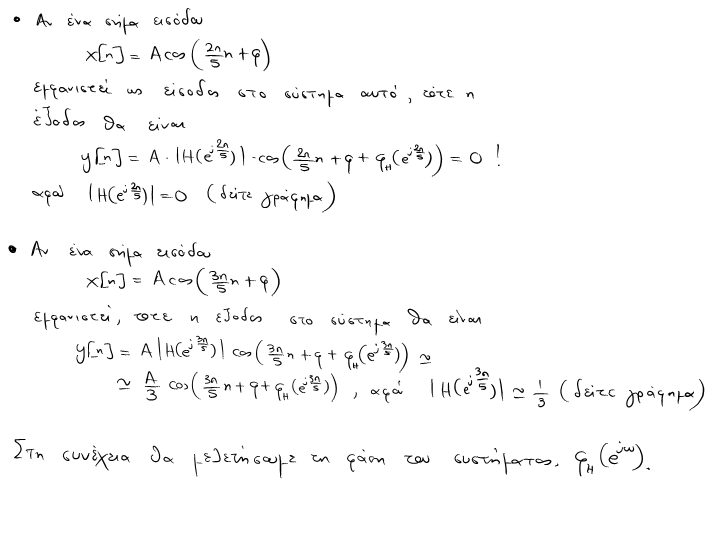 • Αν ένα σήμα εισόδου
x[n] = A cos(2π/5 n + φ)
εμφανιστεί ως είσοδος στο σύστημα αυτό, τότε η
έξοδος θα είναι
y[n] = A · |H(e^{j2π/5})| · cos(2π/5 n + φ + φ_H(e^{j2π/5})) = 0 !
αφού |H(e^{j2π/5})| = 0 (δείτε γράφημα)
• Αν ένα σήμα εισόδου
x[n] = A cos(3π/5 n + φ)
εμφανιστεί, τότε η έξοδος στο σύστημα θα είναι
y[n] = A |H(e^{j3π/5})| cos(3π/5 n + φ + φ_H(e^{j3π/5})) ≃
≃ A/3 cos(3π/5 n + φ + φ_H(e^{j3π/5})) , αφού |H(e^{j3π/5})| ≃ 1/3 (δείτε γράφημα)
Στη συνέχεια θα μελετήσουμε τη φάση του συστήματος, φ_H(e^{jω}).